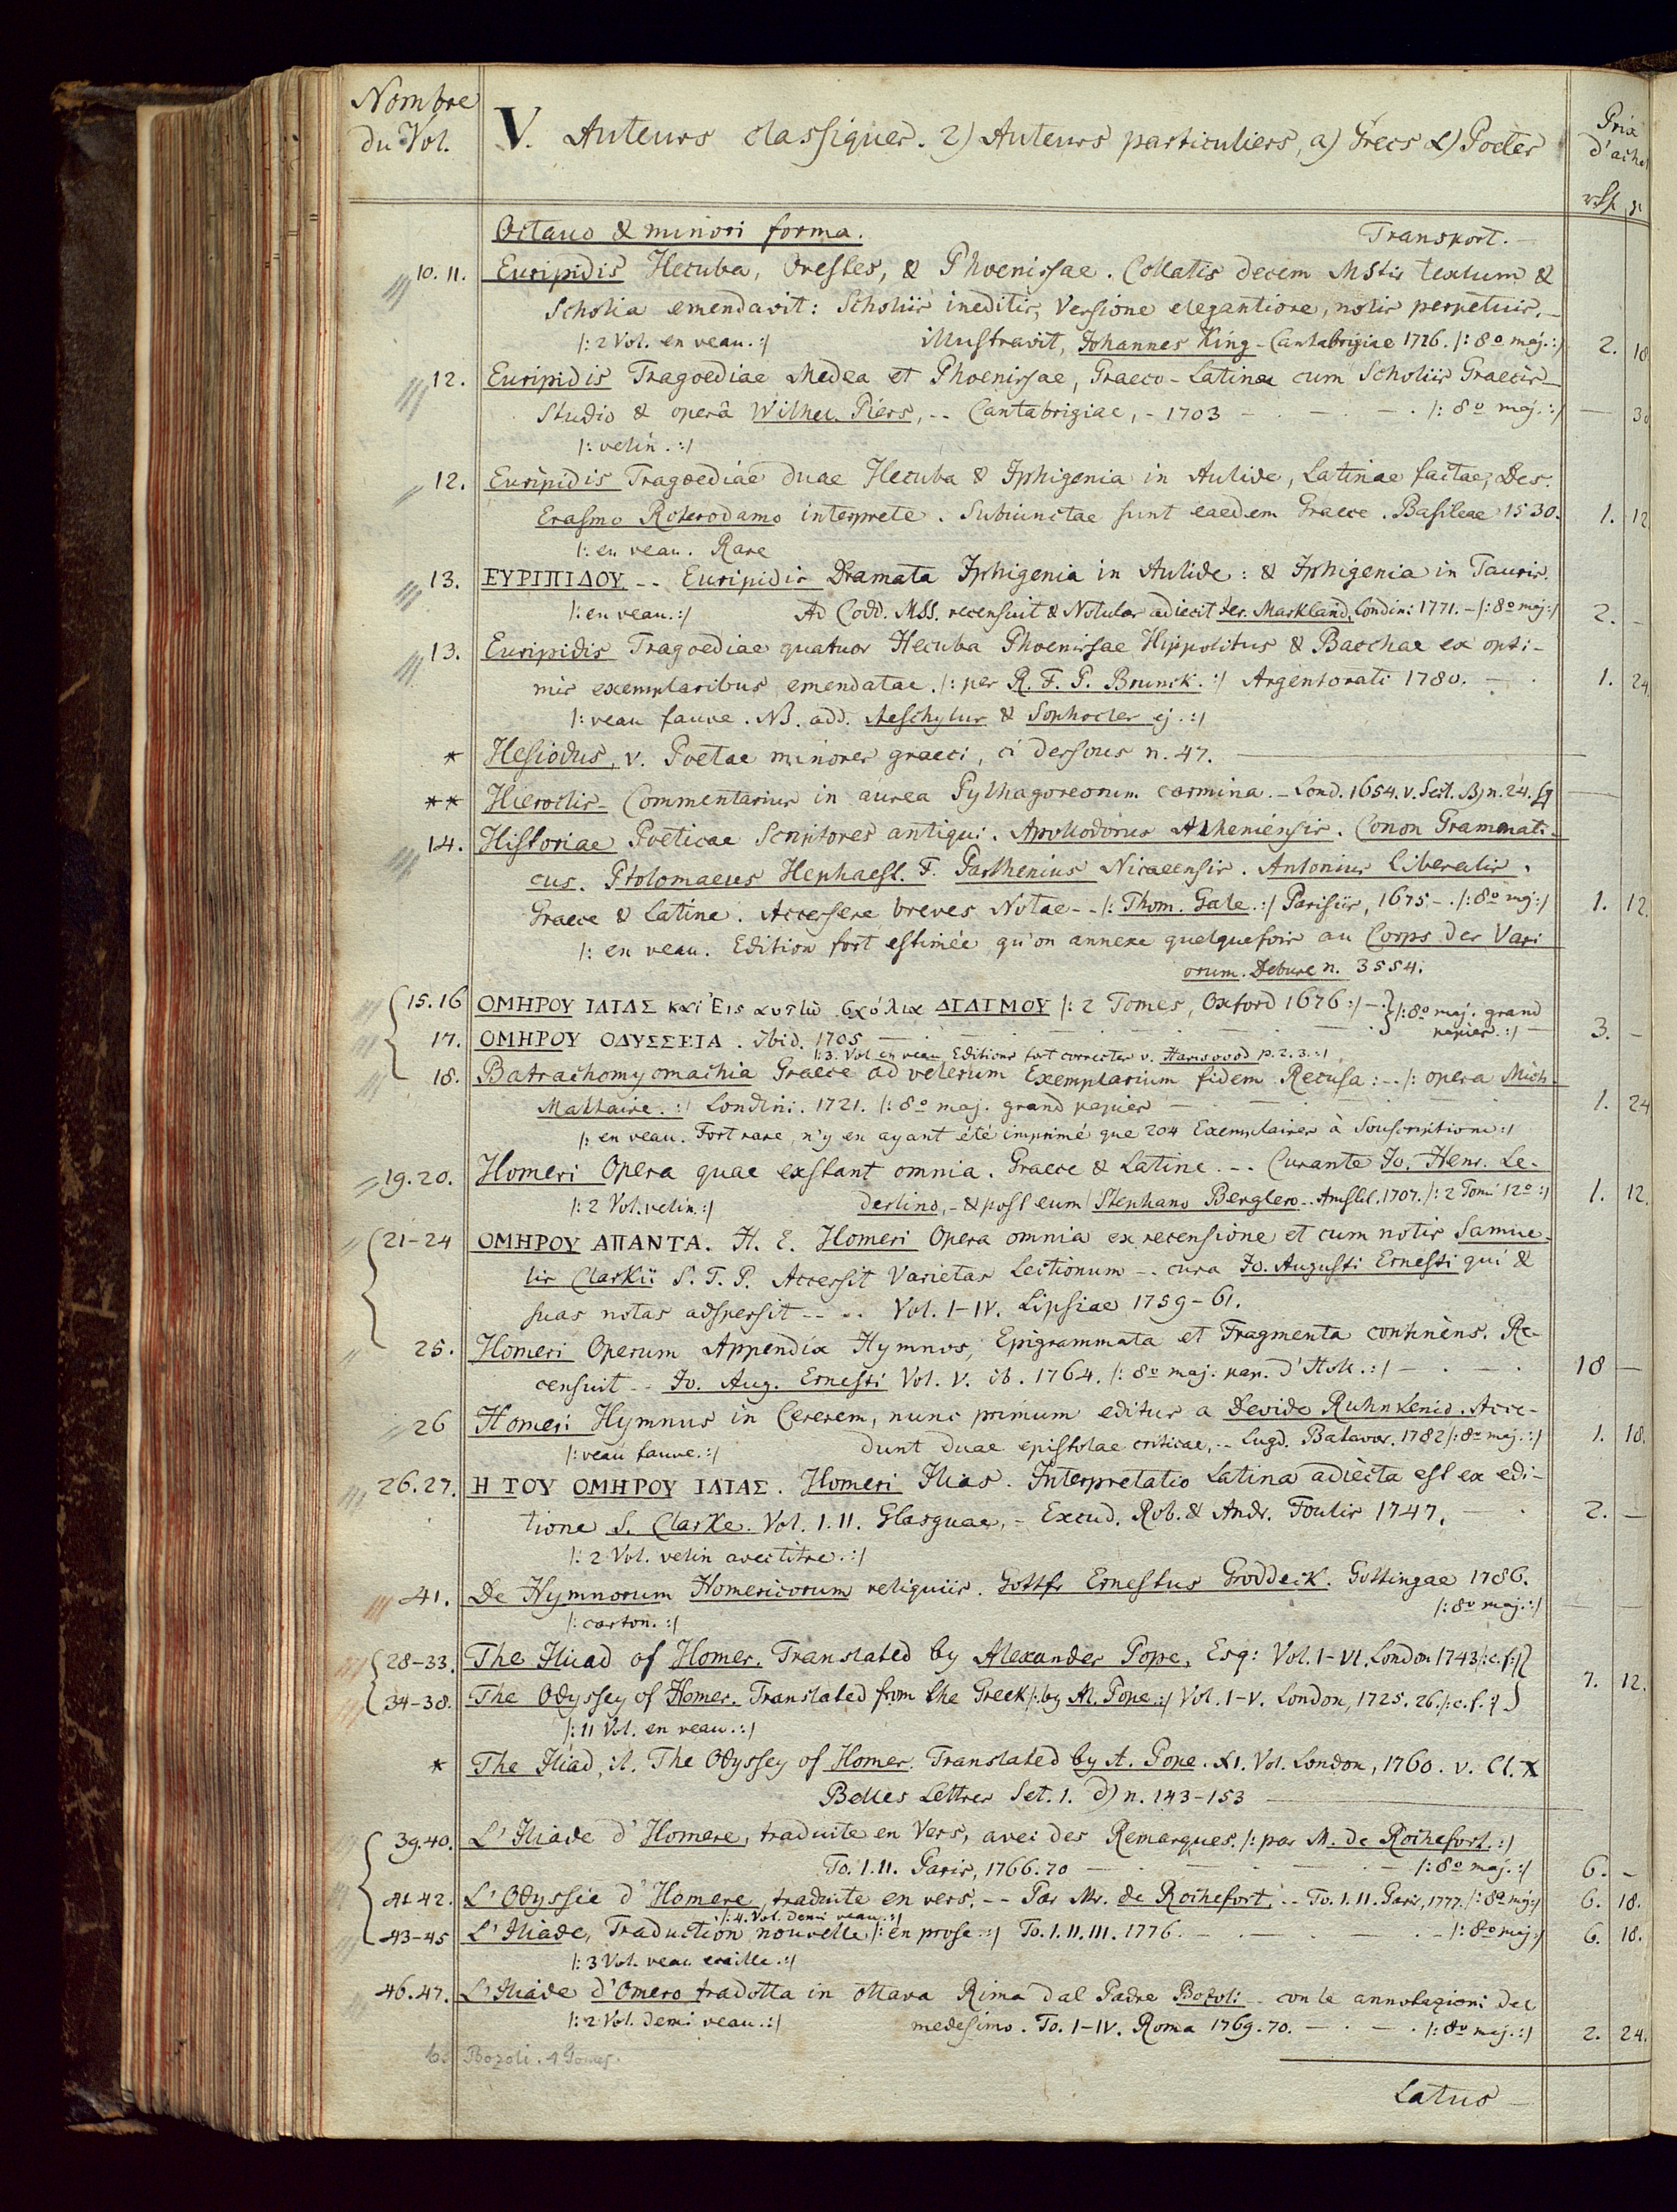 Nombre
du Vol.
V. Auteurs classiques. 2) Auteurs particuliers, a) Grecs α) Poetes
Prix
d'achat
Octavo & minori forma. Transport. -
10. 11. Euripidis Hecuba, Orestes, & Phoenissae. Collatis decem MStis textum &
Scholia emendavit: Scholiis ineditis, Versione elegantiore, notis perpetuis. -
/: 2 Vol. en veau. :/ illustravit, Johannes King - Cantabrigiae 1726. /: 8º maj. :/ 2. 18
12. Euripidis Tragoediae Medea et Phoenissae, Graeco-Latinae cum Scholiis Graecis -
Studio & operâ Wilhel. Piers, -- Cantabrigiae, - 1703 - . - . - . /: 8º maj. :/ — 30
/: velin. :/
12. Euripidis Tragoediae duae Hecuba & Iphigenia in Aulide, Latinae factae, Des.
Erasmo Roterodamo interprete. Subiunctae sunt eaedem Graece. Basileae 1530. 1. 12
/: en veau. Rare
13. ΕΥΡΙΠΙΔΟΥ -- Euripidis Dramata Iphigenia in Aulide: & Iphigenia in Tauris.
/: en veau. :/ Ad Codd. MSS. recensuit & Notulas adiecit Jer. Markland, Londin: 1771. - /: 8º maj :/ 2. -
13. Euripidis Tragoediae quatuor Hecuba Phoenissae Hippolitus & Bacchae ex opti-
mis exemplaribus emendatae. /: per R. F. P. Brunck. :/ Argentorati 1780. - . 1. 24
/: veau fauve. NB. add. Aeschylus & Sophocles ej. :/
* Hesiodus, v. Poetae minores graeci, ci dessous n. 47.
** Hieroclis - Commentarius in aurea Pythagoreorum carmina. - Lond. 1654. v. Sect. B) n. 24.
14. Historiae Poeticae Scriptores antiqui. Apollodorus Atheniensis. Conon Grammati-
cus. Ptolomaeus Hephaest. F. Parthenius Nicaeensis. Antonius Liberalis.
Graece & Latine. Accessere breves Notae -- /: Thom. Gale. :/ Parisiis, 1675 - . /: 8º mj :/ 1. 12.
/: en veau. Edition fort estimée qu'on annexe quelquefois au Corps des Vari
orum. Debure n. 3554.
15. 16 ΟΜΗΡΟΥ ΙΛΙΑΣ και Εις αυτὼ σχόλια ΔΙΔΙΜΟΥ /: 2 Tomes, Oxford 1676 :/ - . } /: 8º maj. grand
papier. :/ -
17. ΟΜΗΡΟΥ ΟΔΥΣΣΕΙΑ. Ibid. 1705 - . 3. -
/: 3. Vol en veau Editions fort correctes v. Harwood p. 2. 3. :/
18. Batrachomyomachia Graece ad veterum Exemplarium fidem Recusa: -- /: opera Mich
Maittaire. :/ Londini. 1721. /: 8º maj. grand papier - . 1. 24
/: en veau. Fort rare, n'y en ayant été imprimé que 204 Exemplaires à Souscriptions :/
19. 20. Homeri Opera quae exstant omnia. Graece & Latine. -- Curante Jo. Henr. Le-
/: 2 Vol. velin. :/ derlino, - & post eum / Stephano Berglero -- Amstel. 1707. /: 2 Tomi 12º :/ 1. 12.
21-24 ΟΜΗΡΟΥ ΑΠΑΝΤΑ. H. E. Homeri Opera omnia ex recensione et cum notis Samue-
lis Clarkii S. T. P. Accessit Varietas Lectionum -- cura Jo. Augusti Ernesti qui &
suas notas adspersit -- .. Vol. I-IV. Lipsiae 1759-61.
25. Homeri Operum Appendix Hymnos, Epigrammata et Fragmenta continens. Re-
censuit -- Jo. Aug. Ernesti Vol. V. ib. 1764. /: 8º maj. pap. d'Holl. :/ - . - . 18 -
26 Homeri Hymnus in Cererem, nunc primum editus a Davide Ruhnkenio. Acce-
/: veau fauve. :/ dunt duae epistolae criticae, -- Lugd. Batavor. 1782 /: 8º maj. :/ 1. 18.
26. 27. Η ΤΟΥ ΟΜΗΡΟΥ ΙΛΙΑΣ. Homeri Ilias. Interpretatio Latina adiecta est ex edi-
tione S. Clarke. Vol. I. II. Glasguae, - Excud. Rob. & Andr. Foulis 1747. - . 2. -
/: 2 Vol. velin avec titre. :/
41. De Hymnorum Homericorum reliquiis. Gottfr Ernestus Groddeck. Gottingae 1786.
/: carton. :/ /: 8º maj. :/ — —
28-33. The Iliad of Homer. Translated by Alexander Pope, Esq: Vol. I-VI. London 1743 /: c. f :/ }
34-38. The Odyssey of Homer. Translated from the Greek /: by Al. Pope. :/ Vol. I-V. London, 1725. 26. /: c. f. :/ } 7. 12.
/: 11 Vol. en veau. :/
* The Iliad, it. The Odyssey of Homer. Translated by A. Pope. XI. Vol. London, 1760. v. Cl. X
Belles Lettres Set. 1. d) n. 143-153
39. 40. L'Iliade d'Homere, traduite en Vers, avec des Remarques. /: par M. de Rochefort. :/
To. I. II. Paris, 1766. 70 - . /: 8º maj. :/ 6. -
41 42. L'Odyssée d'Homere, traduite en vers. -- Par Mr. de Rochefort. -- To. I. II. Paris, 1777. /: 8º mj :/ 6. 18.
/: 4. Vol. demi veau. :/
43-45 L'Iliade, Traduction nouvelle /: en prose. :/ To. I. II. III. 1776. - . /: 8º maj :/ 6. 18.
/: 3 Vol. veau ecaille. :/
46. 47. L'Iliade d'Omero tradotta in ottava Rima dal Padre Bozoli -- con le annotazioni del
/: 2 Vol. demi veau. :/ medesimo. To. I-IV. Roma 1769. 70. - . - . /: 8º maj. :/ 2. 24.
Bozoli. 4 Tomes.
Latus -